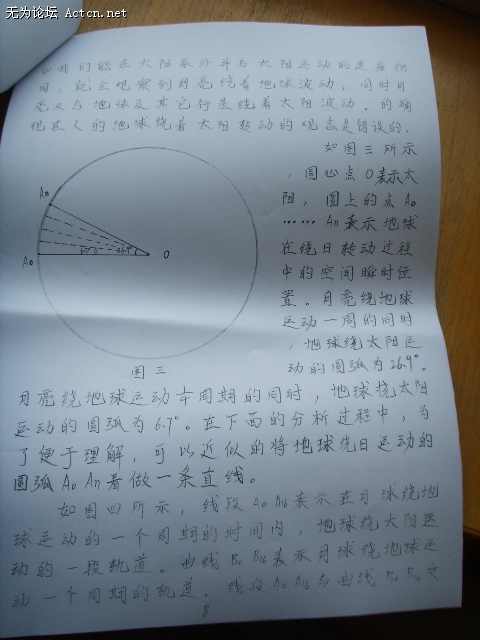 无为论坛 Actcn.net
如我们能在太阳系外并与太阳运动的速度相
同，就会观察到月亮绕着地球波动，同时月
亮又与地球及其它行星绕着太阳波动。的确
现在人的地球绕着太阳转动的观念是错误的。
如图三所示
，圆心点O表示太
阳，圆上的点A₀
……An表示地球
在绕日转动过程
中的空间瞬时位
置。月亮绕地球
运动一周的同时
，地球绕太阳运
动的圆弧为26.9°。
An
A₀
6.7°
26.9°
O
图三
月亮绕地球运动本周期的同时，地球绕太阳
运动的圆弧为6.7°。在下面的分析过程中，为
了便于理解，可以近似的将地球绕日运动的
圆弧A₀An看做一条直线。
如图四所示，线段A₀A₁₆表示在月球绕地
球运动的一个周期的时间内，地球绕太阳运
动的一段轨道。曲线B₀B₁₆表示月球绕地球运
动一个周期的轨道。线段A₀A₁₆与曲线B₀B₁₆交
8